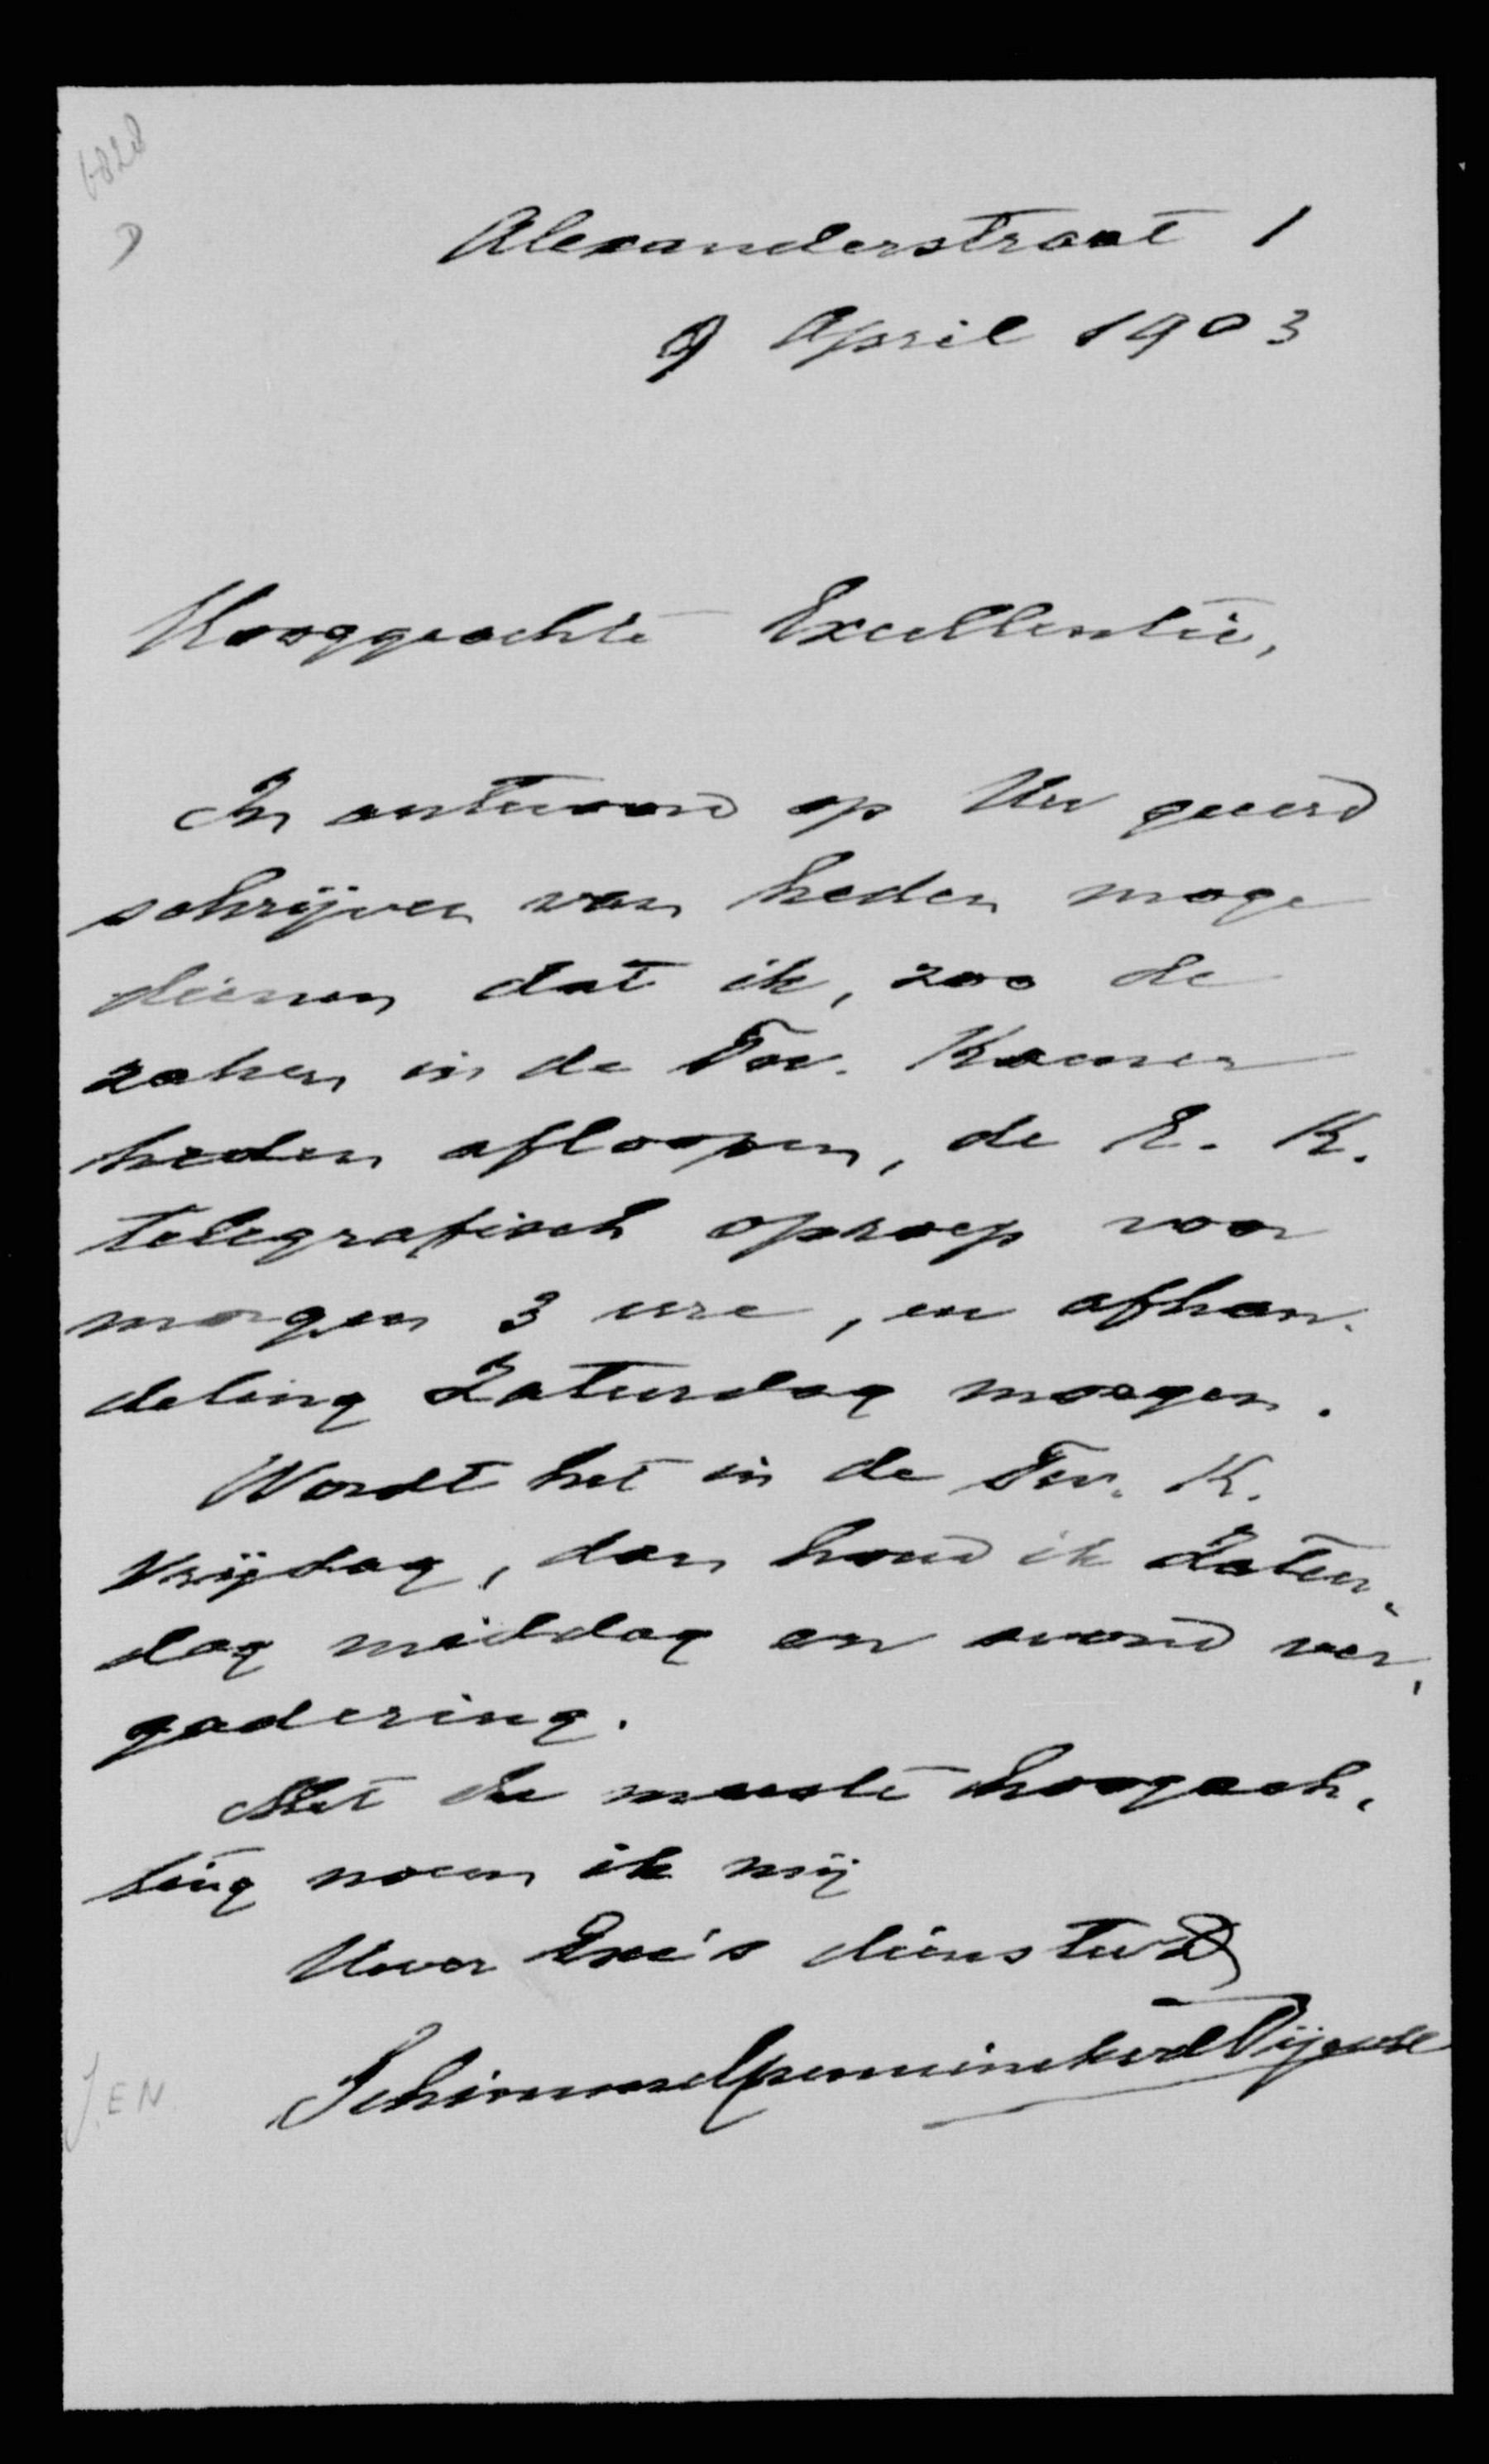 6828
D
Alexanderstraat 1
9 April 1903
Hooggeachte Excellentie,
In antwoord op Uw geeerd
schrijven van heden moge
dienen dat ik, zoo de
zaken in de Tw. Kamer
heden afloopen, de E. K.
telegrafisch oproep voor
morgen 3 ure, en afhan-
deling Zaturdag morgen.
Wordt het in de Tw. K.
Vrijdag, dan houd ik Zatur-
dag middag en avond ver-
gadering.
Met de meeste hoogach-
ting noem ik mij
Uwer Exc's dienstw
Schimmelpenninck vd Nijenbe
J.EN.